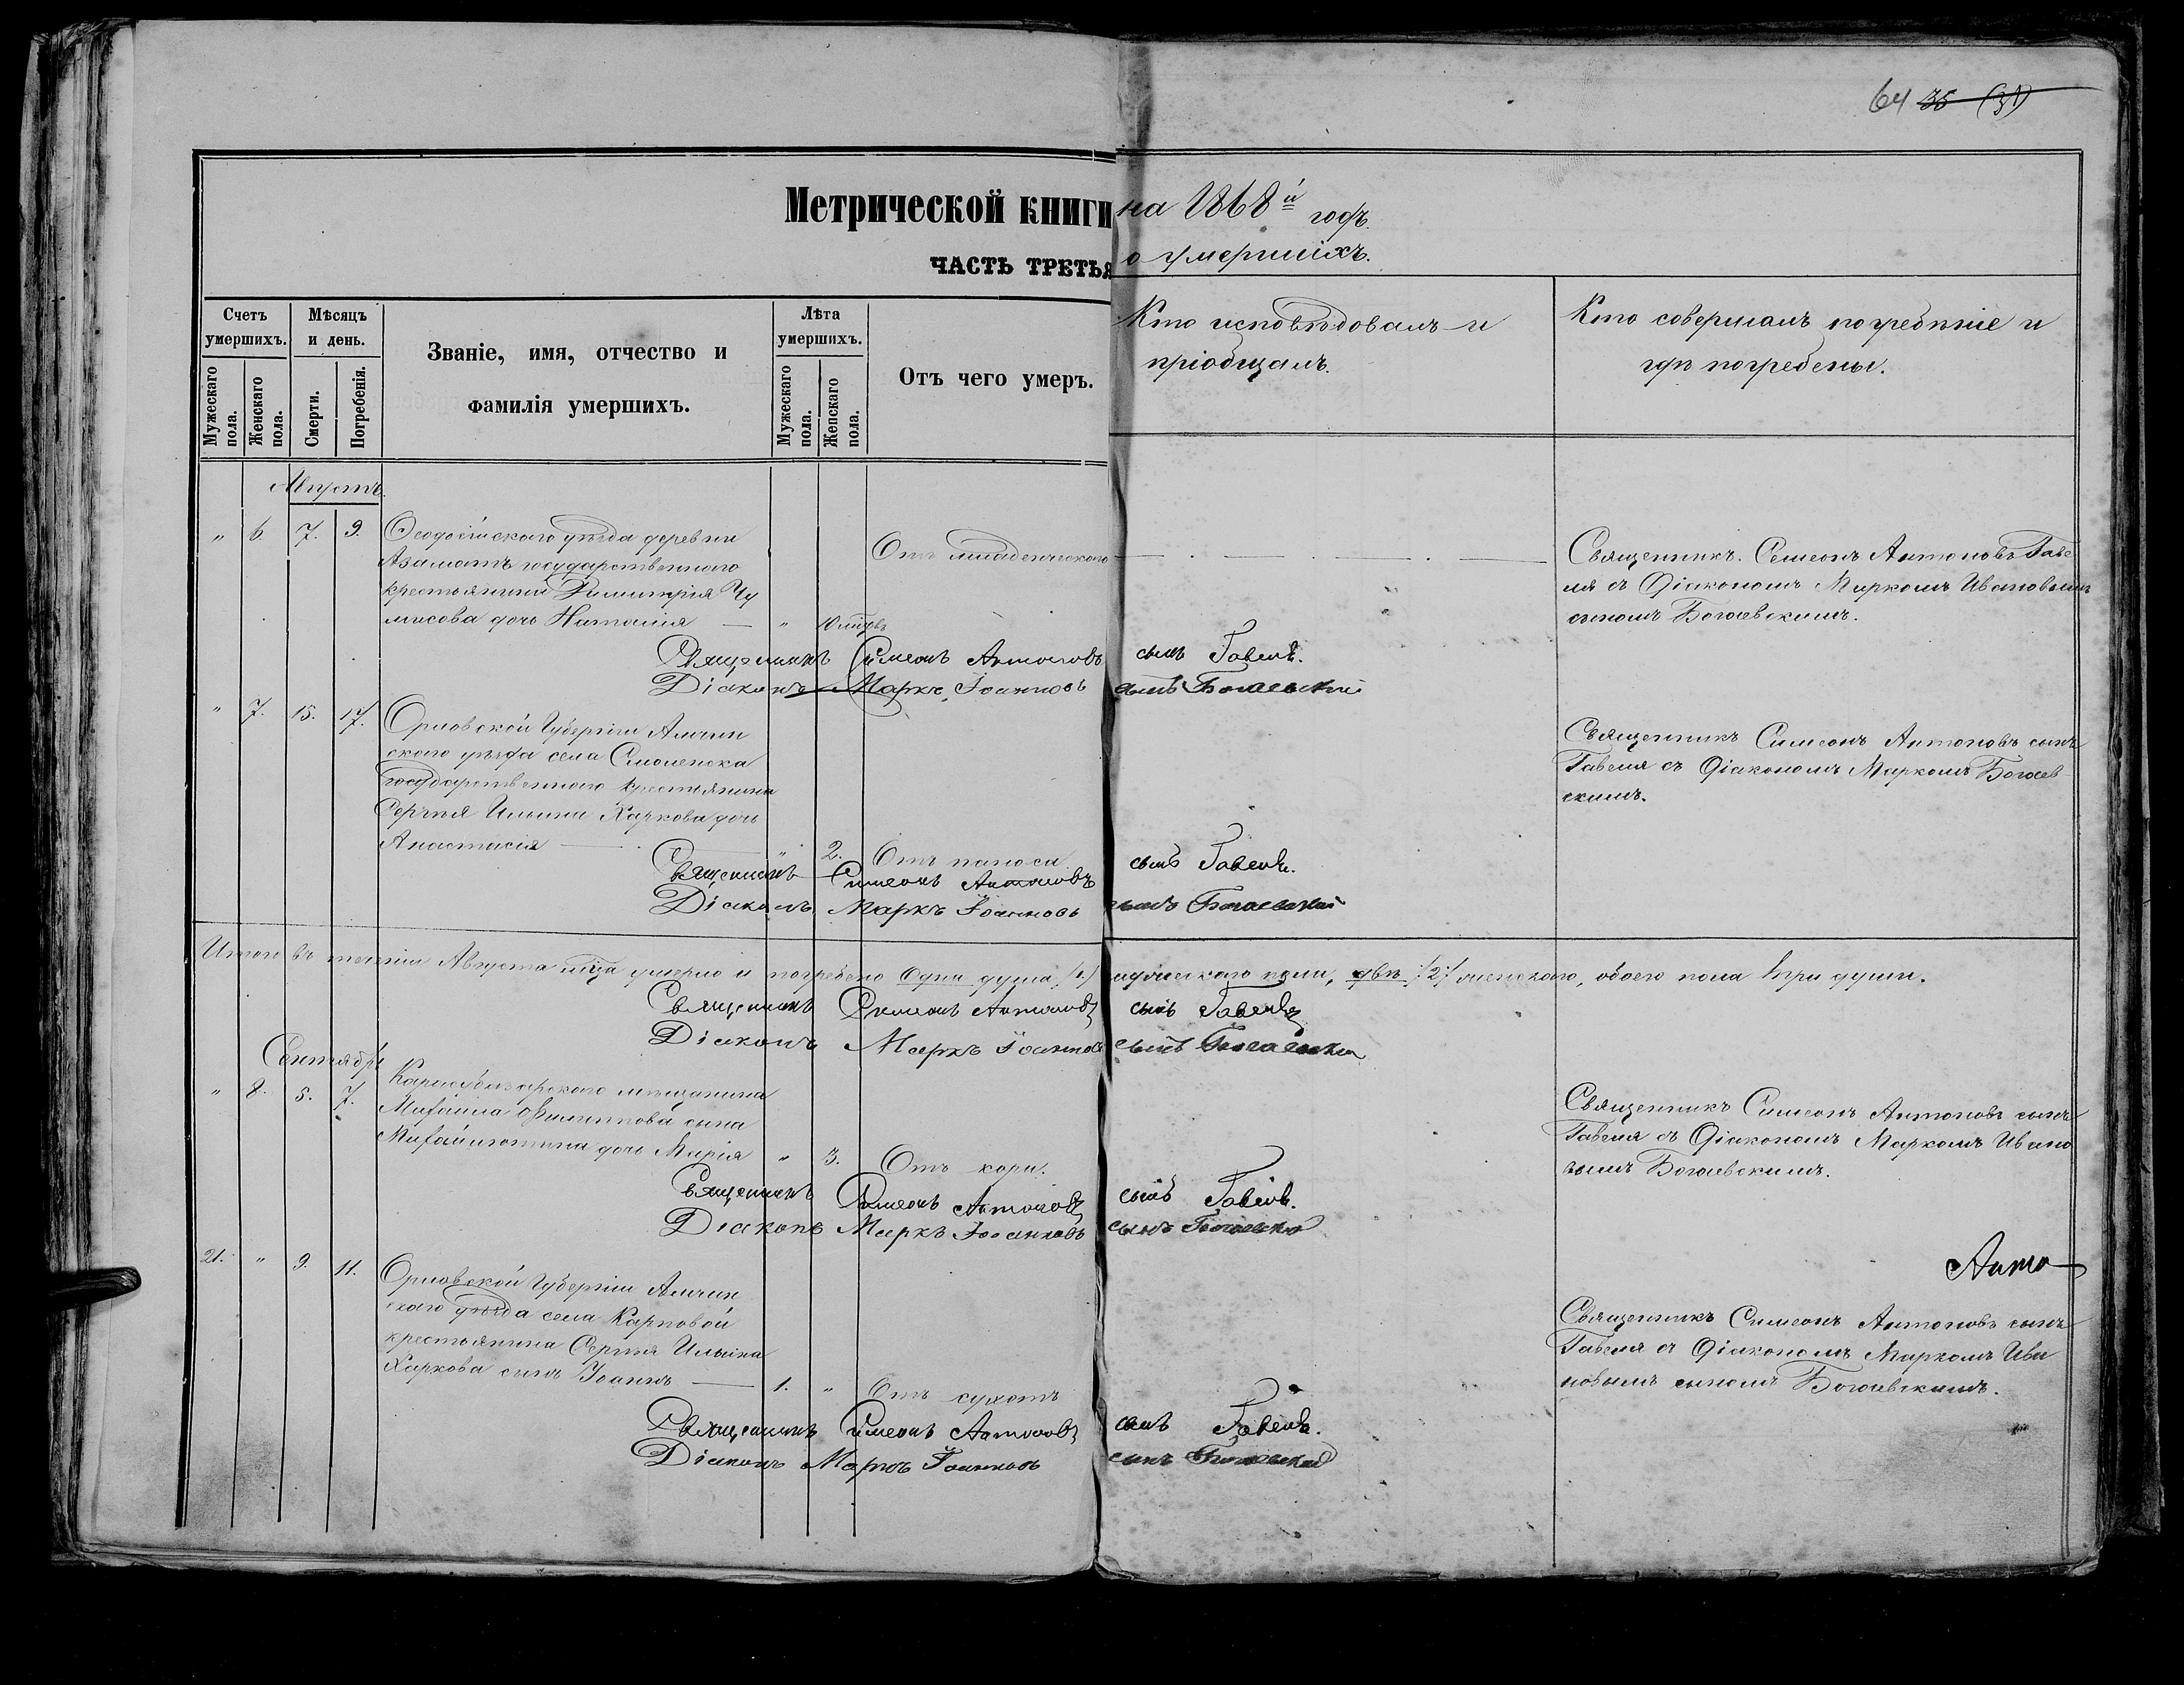 64 35 (31)
Метрической книги на 1868й годъ.
ЧАСТЬ ТРЕТЬЯ о умершихъ.
Счетъ умершихъ.
Мѣсяцъ и день.
Званіе, имя, отчество и
фамилія умершихъ.
Лѣта умершихъ.
Отъ чего умеръ.
Кто исповѣдовалъ и
пріобщалъ.
Кто совершалъ погребеніе и
гдѣ погребены.
Мужескаго пола.
Женскаго пола.
Смерти.
Погребенія.
Мужескаго пола.
Женскаго пола.
Августъ.
" 6. 7. 9. Ѳеодосійскаго уѣзда деревни
Азаматъ государственнаго
крестьянина Димитрія Чу
мисова дочь Наталія — " 10 мцѣв
Отъ младенческаго
Священникъ. Семеонъ Антоновъ Гаве
ля съ Діакономъ Маркомъ Ивановымъ
сыномъ Богаевскимъ.
Священникъ Симеонъ Антоновъ сынъ Гавель.
Діаконъ Маркъ Іоанновъ сынъ Богаевскій
" 7. 15. 17. Орловской Губерніи
скаго уѣзда села Смоленска
государственнаго крестьянина
Сергѣя Ильина Харкова дочь
Анастасія — " 2. Отъ поноса
Священникъ Симеонъ Антоновъ сынъ
Гавеля съ Діакономъ Маркомъ Богаев
скимъ.
Священникъ Симеонъ Антоновъ сынъ Гавель.
Діаконъ Маркъ Іоанновъ сынъ Богаевскій
Итого въ теченіи Августа мѣца умерло и погребено одна душа /1/ мужескаго пола, двѣ /2/ женскаго, обоего пола три души.
Священникъ Симеонъ Антоновъ сынъ Гавель
Діаконъ Маркъ Іоаннов сынъ Богаевски
Сентябрь
" 8. 5. 7. Карасубазарскаго мѣщанина
Михаила Филиппова сына
дочь Марія " 3. Отъ кори.
Священникъ Симеонъ Антоновъ сынъ
Гавеля съ Діакономъ Маркомъ Ивано
вымъ Богаевскимъ.
Священникъ Симеонъ Антоновъ сынъ Гавель.
Діаконъ Маркъ Іоанновъ сынъ Богаевскій
21. " 9. 11. Орловской Губерніи
скаго уѣзда села Карповой
крестьянина Сергѣя Ильина
Харкова сынъ Іоаннъ — 1. " Отъ сухотъ
Анто
Священникъ Симеонъ Антоновъ сынъ
Гавеля съ Діакономъ Маркомъ Ива
новымъ сыномъ Богаевскимъ.
Священникъ Симеонъ Антоновъ сынъ Гавель.
Діаконъ Маркъ Іоанновъ сынъ Богаевскій